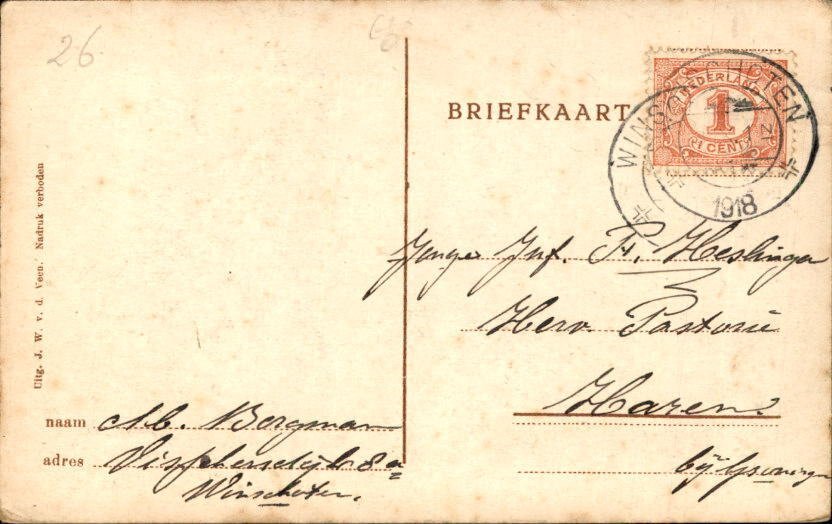 26
BRIEFKAART
NEDERLAND
1
1 CENT
WINSCHOTEN
1918
Uitg. J. W. v. d. Veen. Nadruk verboden
Jonge Juf. Fr. Heslinga
Herv. Pastorie
Haren.
bij Groningen
naam M. Bergman
adres Visscherdijk 8a
Winschoten.